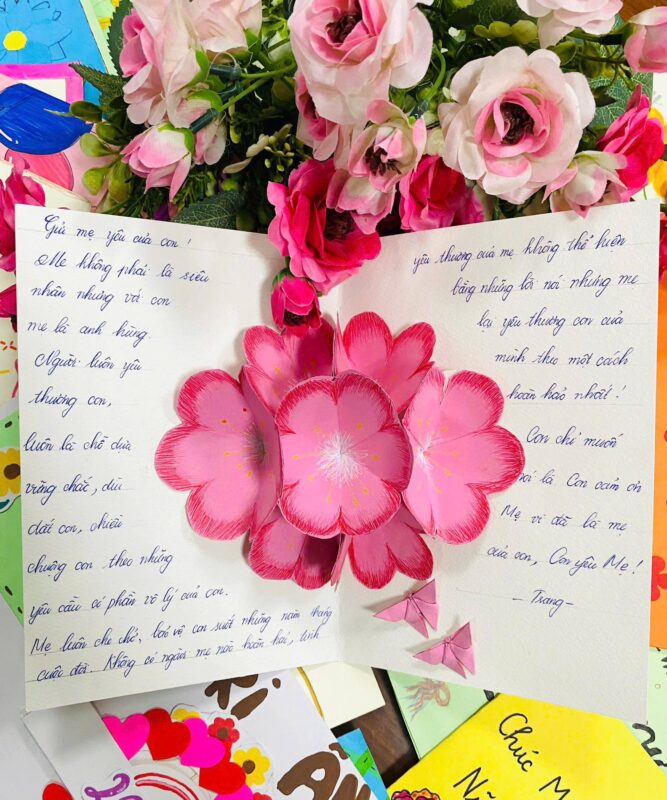 Gửi mẹ yêu của con !
Mẹ không phải là siêu
nhân nhưng với con
mẹ là anh hùng.
Người luôn yêu
thương con,
luôn là chỗ dựa
vững chắc, dìu
dắt con, chiều
chuộng con theo những
yêu cầu có phần vô lý của con.
Mẹ luôn che chở, bảo vệ con suốt những năm tháng
cuộc đời. Không có người mẹ nào hoàn hảo, tình
yêu thương của mẹ không thể hiện
bằng những lời nói nhưng mẹ
lại yêu thương con của
mình theo một cách
hoàn hảo nhất !
Con chỉ muốn
nói là Con cảm ơn
Mẹ vì đã là mẹ
của con, Con yêu Mẹ !
- Trang -
Chúc M